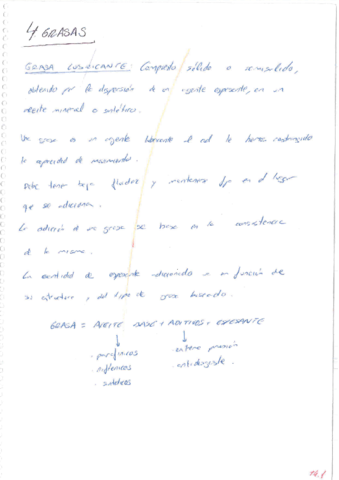 4 GRASAS
GRASA LUBRICANTE: Compuesto sólido o semisólido,
obtenido por la dispersión de un agente espesante, en un
aceite mineral o sintético.
Una grasa es un agente lubricante al cual le hemos restringido
la capacidad de movimiento.
Debe tener baja fluidez y mantenerse fija en el lugar
que se adiciona.
La adición de una grasa se basa en la consistencia
de la misma.
La cantidad de espesante adicionado es en función de
su estructura, y del tipo de grasa buscado.
GRASA = ACEITE BASE + ADITIVOS + ESPESANTE
· parafínicos
· nafténicos
· sintéticos
· extrema presión
· antidesgaste.